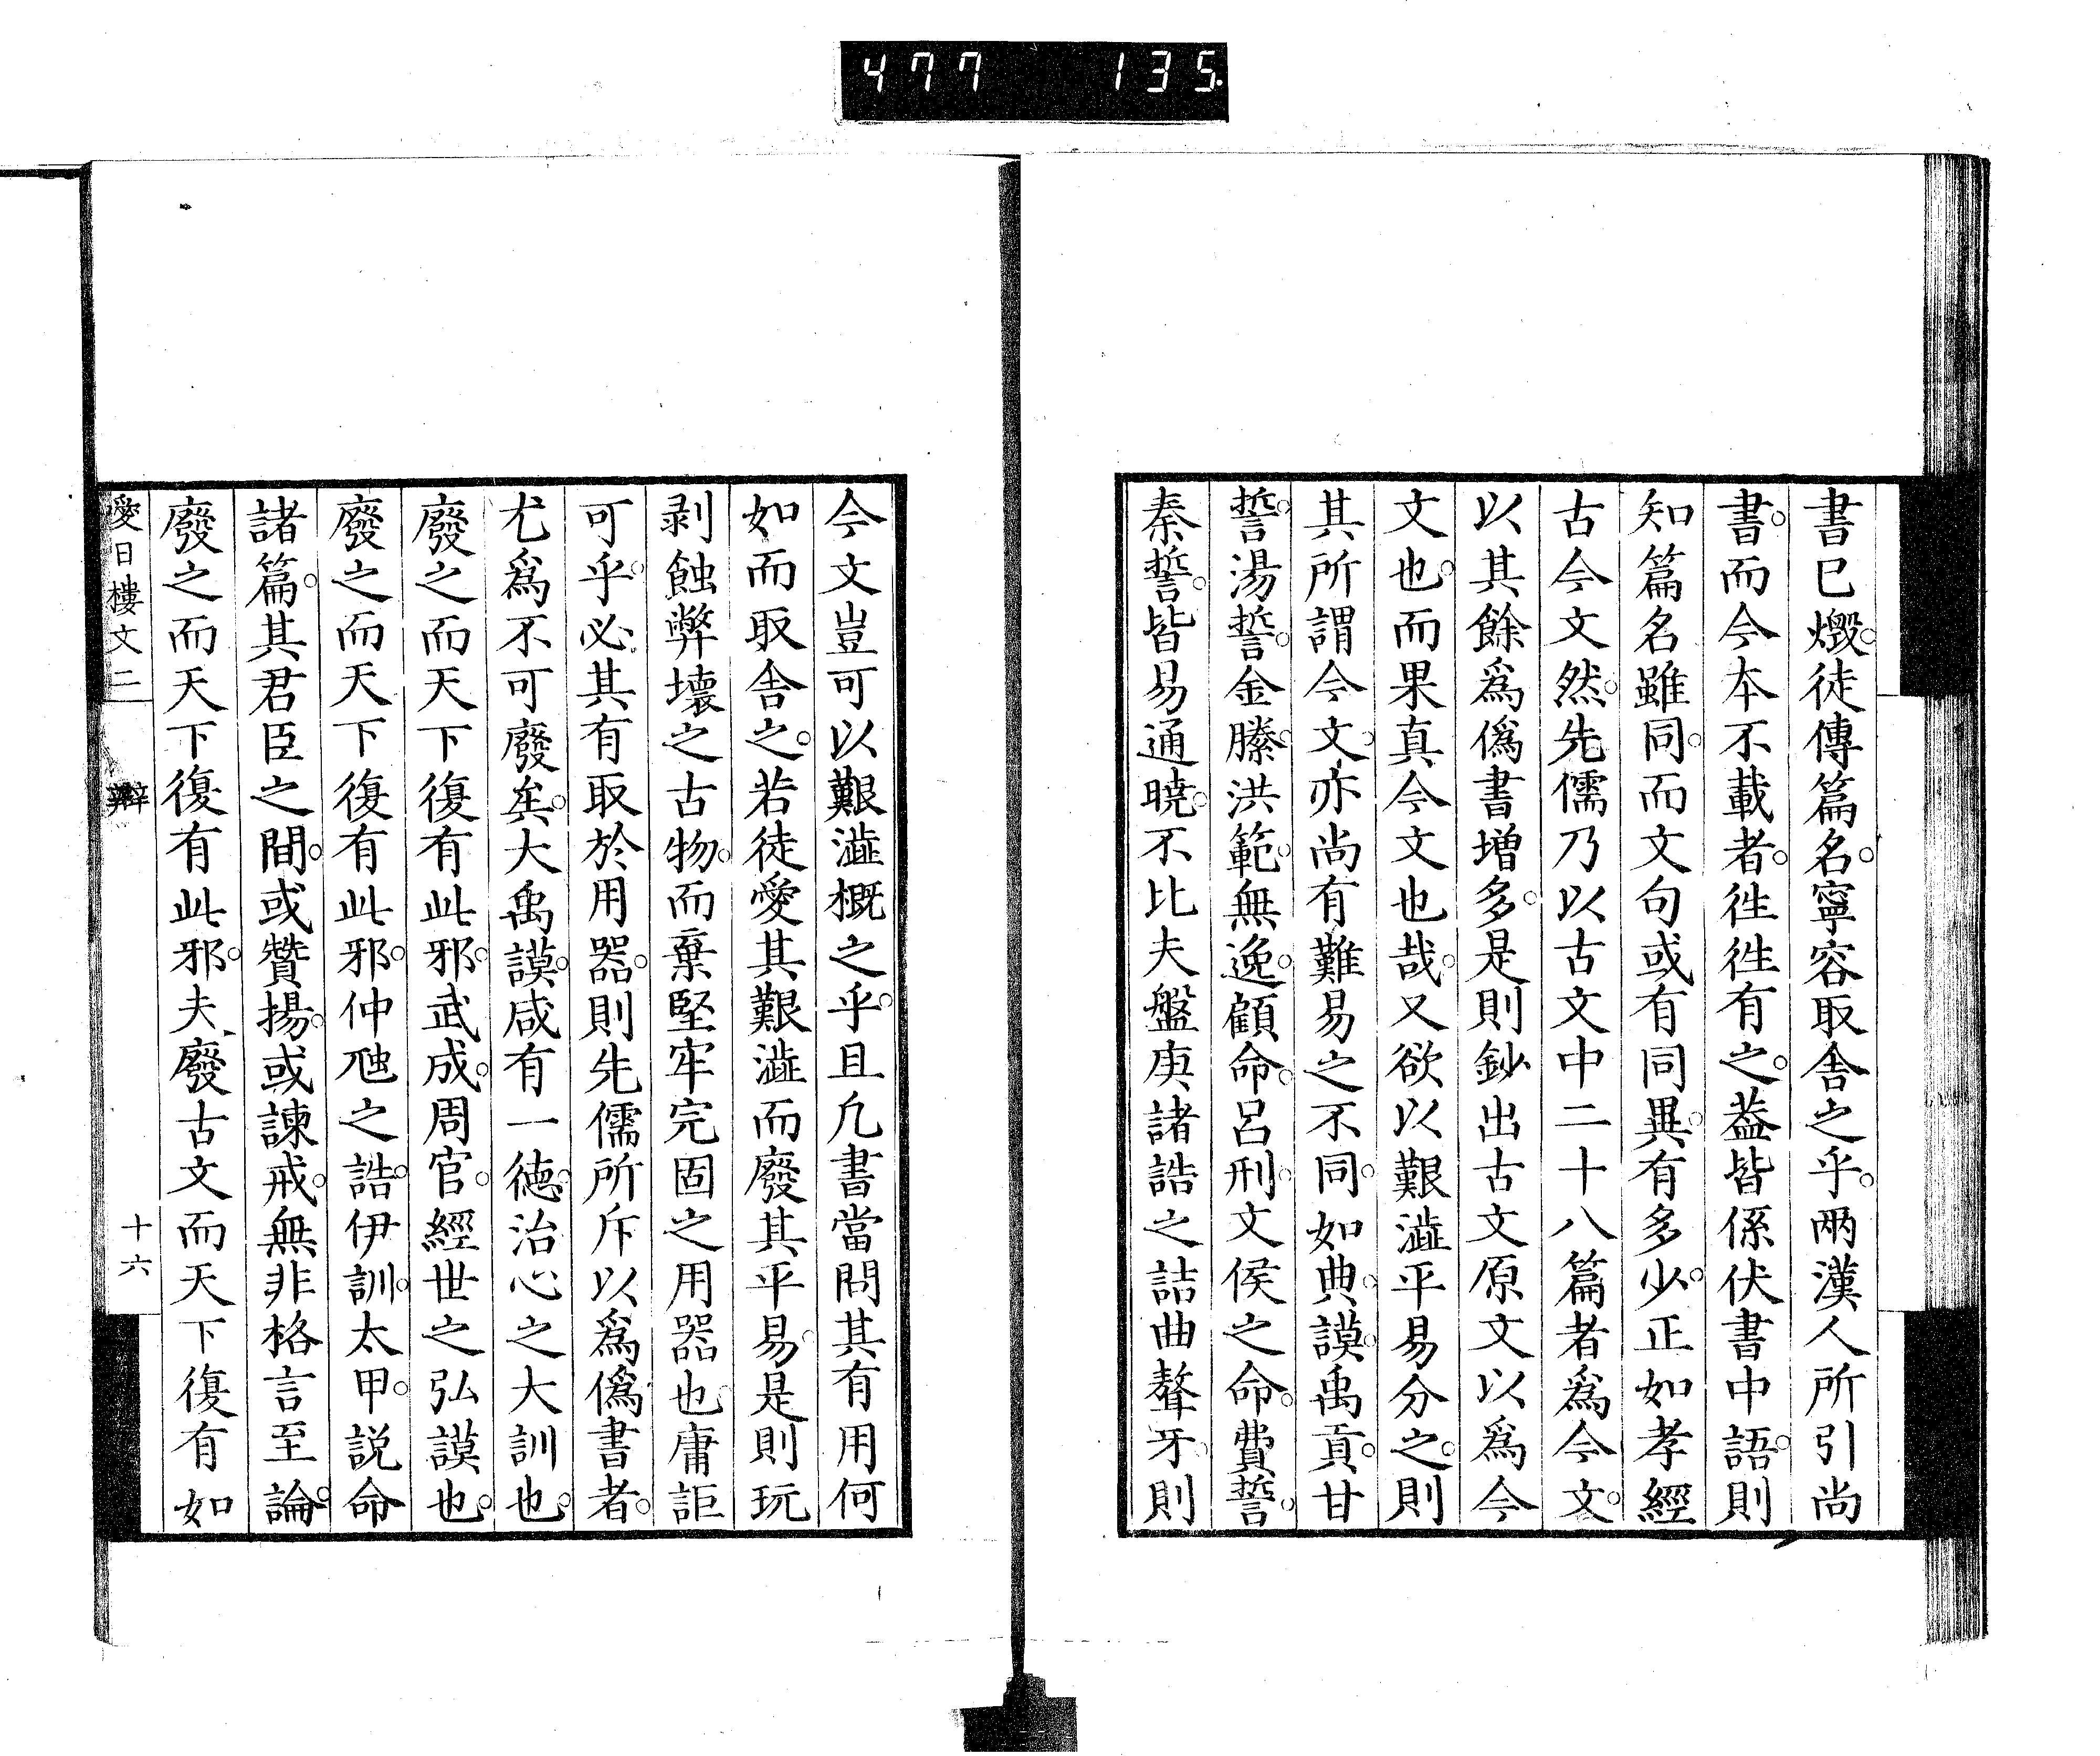 477 135
書已燬。徒傳篇名。寧容取舍之乎。兩漢人所引尚
書。而今本不載者。徃徃有之。葢皆係伏書中語。則
知篇名雖同。而文句或有同異。有多少。正如孝經
古今文然。先儒乃以古文中二十八篇者爲今文。
以其餘爲僞書增多。是則鈔出古文原文以爲今
文也。而果真今文也哉。又欲以艱澁平易分之。則
其所謂今文。亦尚有難易之不同。如典。謨。禹貢。甘
誓。湯誓。金縢。洪範。無逸。顧命。呂刑。文侯之命。費誓。
秦誓。皆易通曉。不比夫盤庚諸誥之詰曲聱牙。則
今文豈可以艱澁概之乎。且凡書當問其有用何
如而取舍之。若徒愛其艱澁而廢其平易。是則玩
剥蝕弊壞之古物。而棄堅牢完固之用器也。庸詎
可乎。必其有取於用器。則先儒所斥以爲僞書者。
尤爲不可廢矣。大禹謨。咸有一德。治心之大訓也。
廢之而天下復有此邪。武成。周官。經世之弘謨也。
廢之而天下復有此邪。仲虺之誥。伊訓。太甲。説命
諸篇。其君臣之間。或贊揚。或諫戒。無非格言至論。
廢之而天下復有此邪。夫廢古文而天下復有如
愛日樓文二 辨 十六